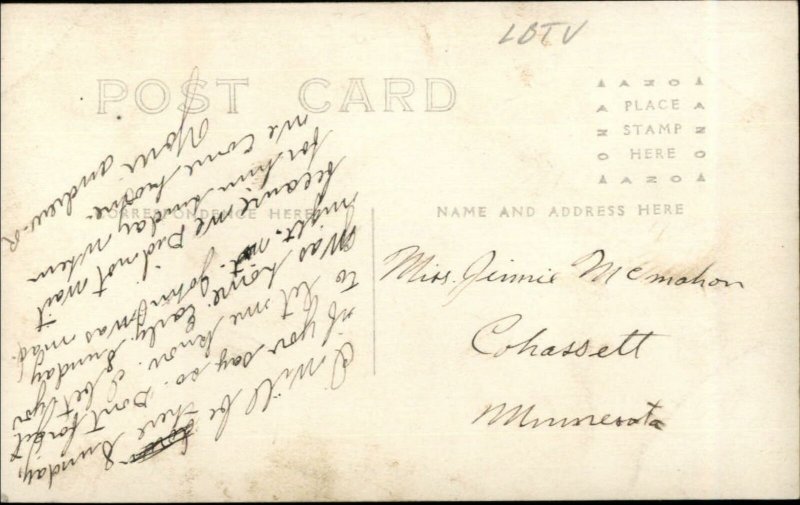 LBTV
POST CARD
AZO
PLACE
STAMP
HERE
AZO
CORRESPONDENCE HERE
NAME AND ADDRESS HERE
Miss. Jinnie McMahon
Cohassett
Minnesota
I will be there Sunday,
if you say so. Dont forget
to let me know. I bet you
was home Early Sunday,
night. John was mad.
because we did not wait
for him Sunday when
we come home.
Your andrew. R